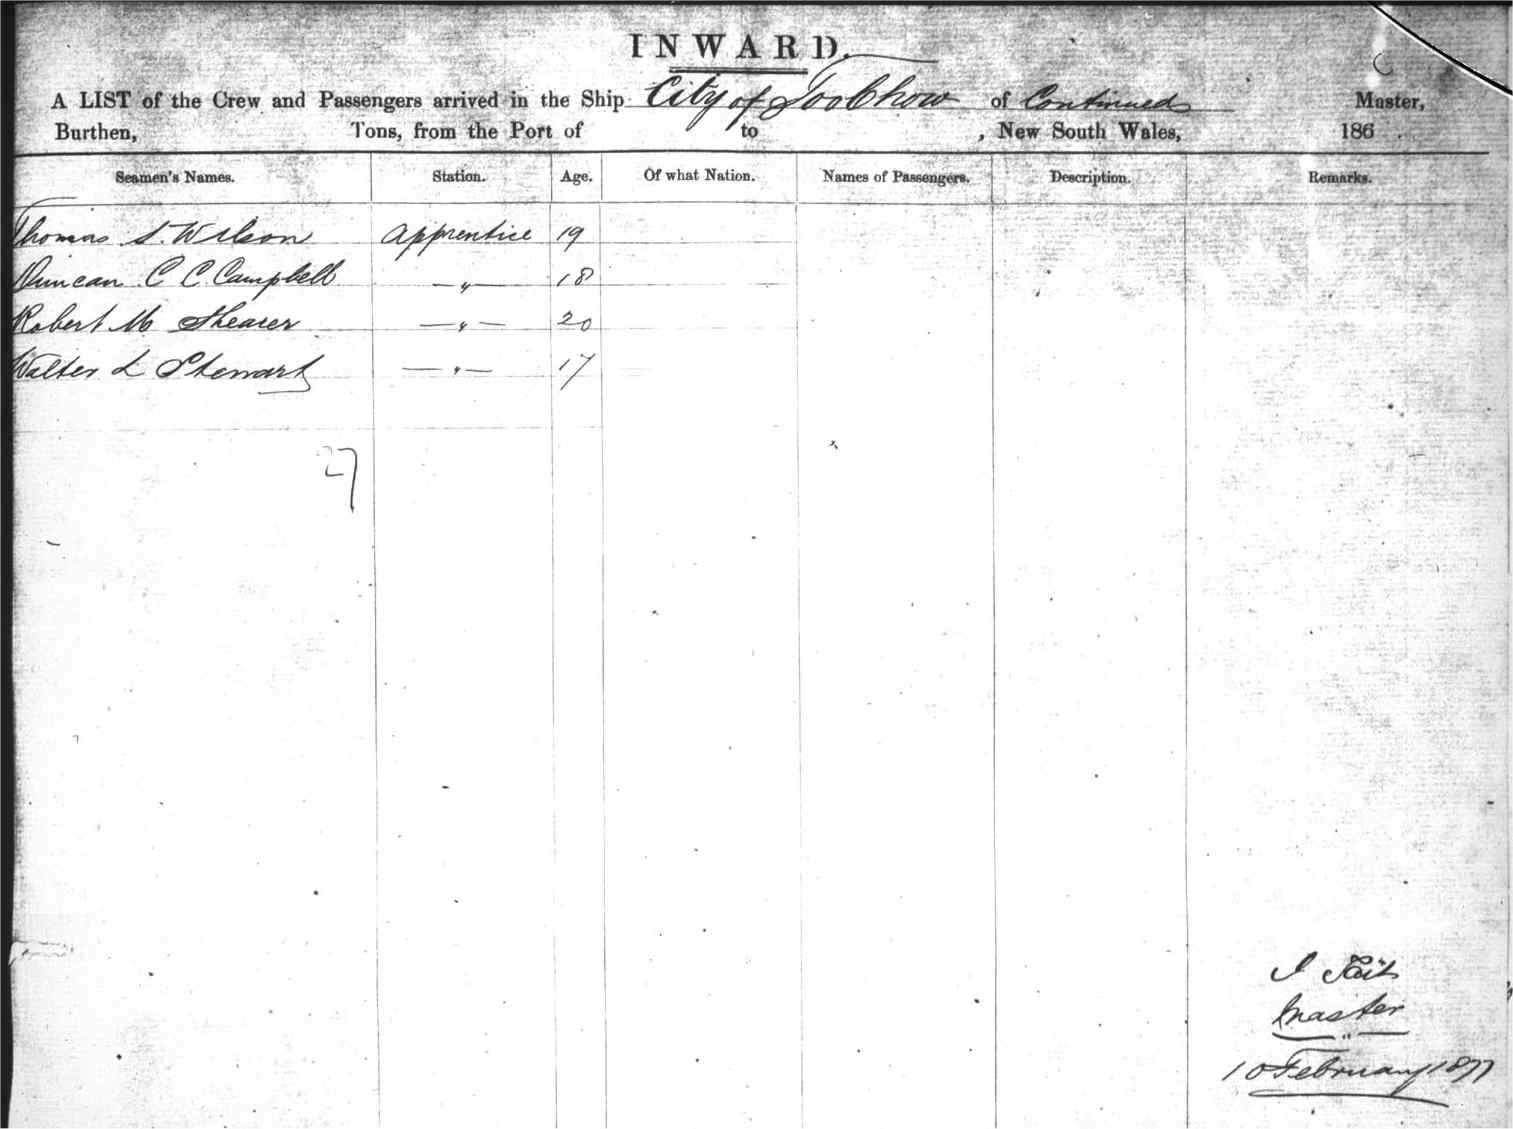 INWARD.
A LIST of the Crew and Passengers arrived in the Ship City of Soochow of Continued Master,
Burthen, Tons, from the Port of to , New South Wales, 186 .
Seamen's Names. Station. Age. Of what Nation. Names of Passengers. Description. Remarks.
Thomas S. Wilson Apprentice 19
Duncan C C Campbell —〃— 18
Robert M Shearer —〃— 20
Walter L Stewart —〃— 17
27
J Tait
Master
10 February 1877